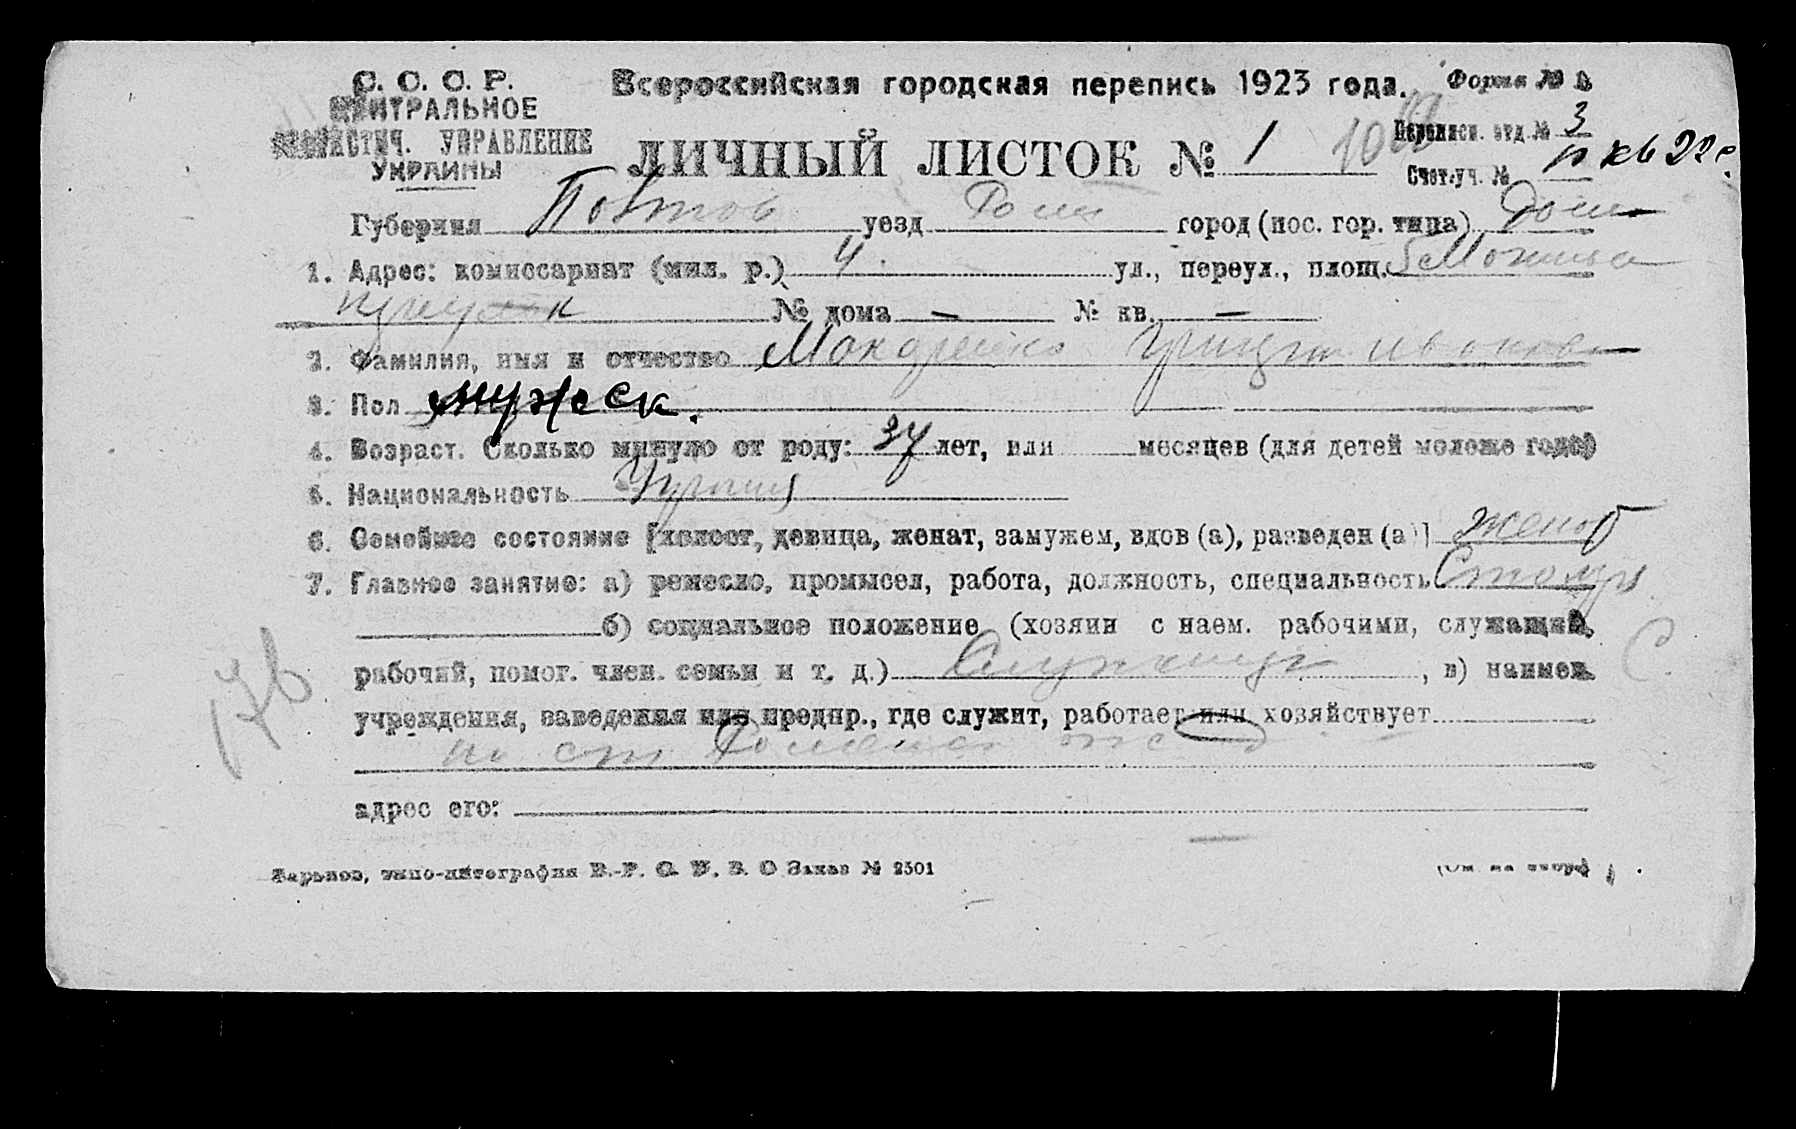 С. С. С. Р.
ЦЕНТРАЛЬНОЕ
СТАТИСТИЧ. УПРАВЛЕНИЕ
УКРАИНЫ
Всероссийская городская перепись 1923 года.
Форма № 1
ЛИЧНЫЙ ЛИСТОК № 1
Переписн. отд. № 3
Счет. уч. № кв 22
Губерния Полтов уезд Ром город (пос. гор. типа) Ром
1. Адрес: комиссариат (мил. р.) 4. ул., переул., площ.
№ дома — № кв. —
2. Фамилия, имя и отчество
3. Пол мужеск.
4. Возраст. Сколько минуло от роду: 37 лет, или месяцев (для детей моложе года)
5. Национальность
6. Семейное состояние [холост, девица, женат, замужем, вдов (а), разведен (а)] женат
7. Главное занятие: а) ремесло, промысел, работа, должность, специальность Столяр
б) социальное положение (хозяин с наем. рабочими, служащий,
рабочий, помог. член. семьи и т. д.) , в) наимен.
учреждения, заведения или предпр., где служит, работает или хозяйствует
на ст
адрес его:
176
С
Харьков, типо-литография Заказ № 2501
(См. на оборо